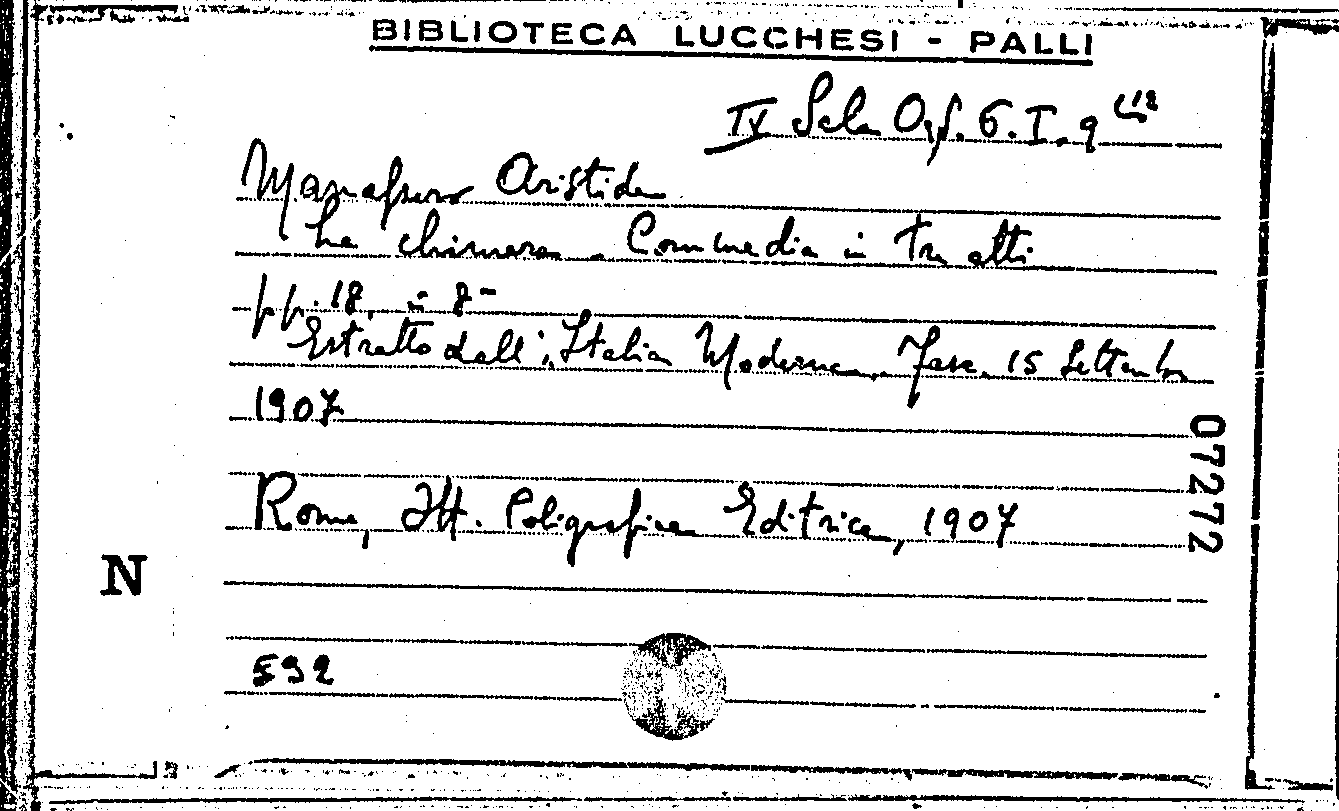 BIBLIOTECA LUCCHESI - PALLI
IV Sala Op. 6. I. 9
Manassero Aristide
La chimera. Commedia in tre atti
pp. 18, in 8-
Estratto dall', Italia Moderna. Fasc. 15 Settembre
1907
07272
Roma, Ist. Poligrafica Editrice, 1907
N
592